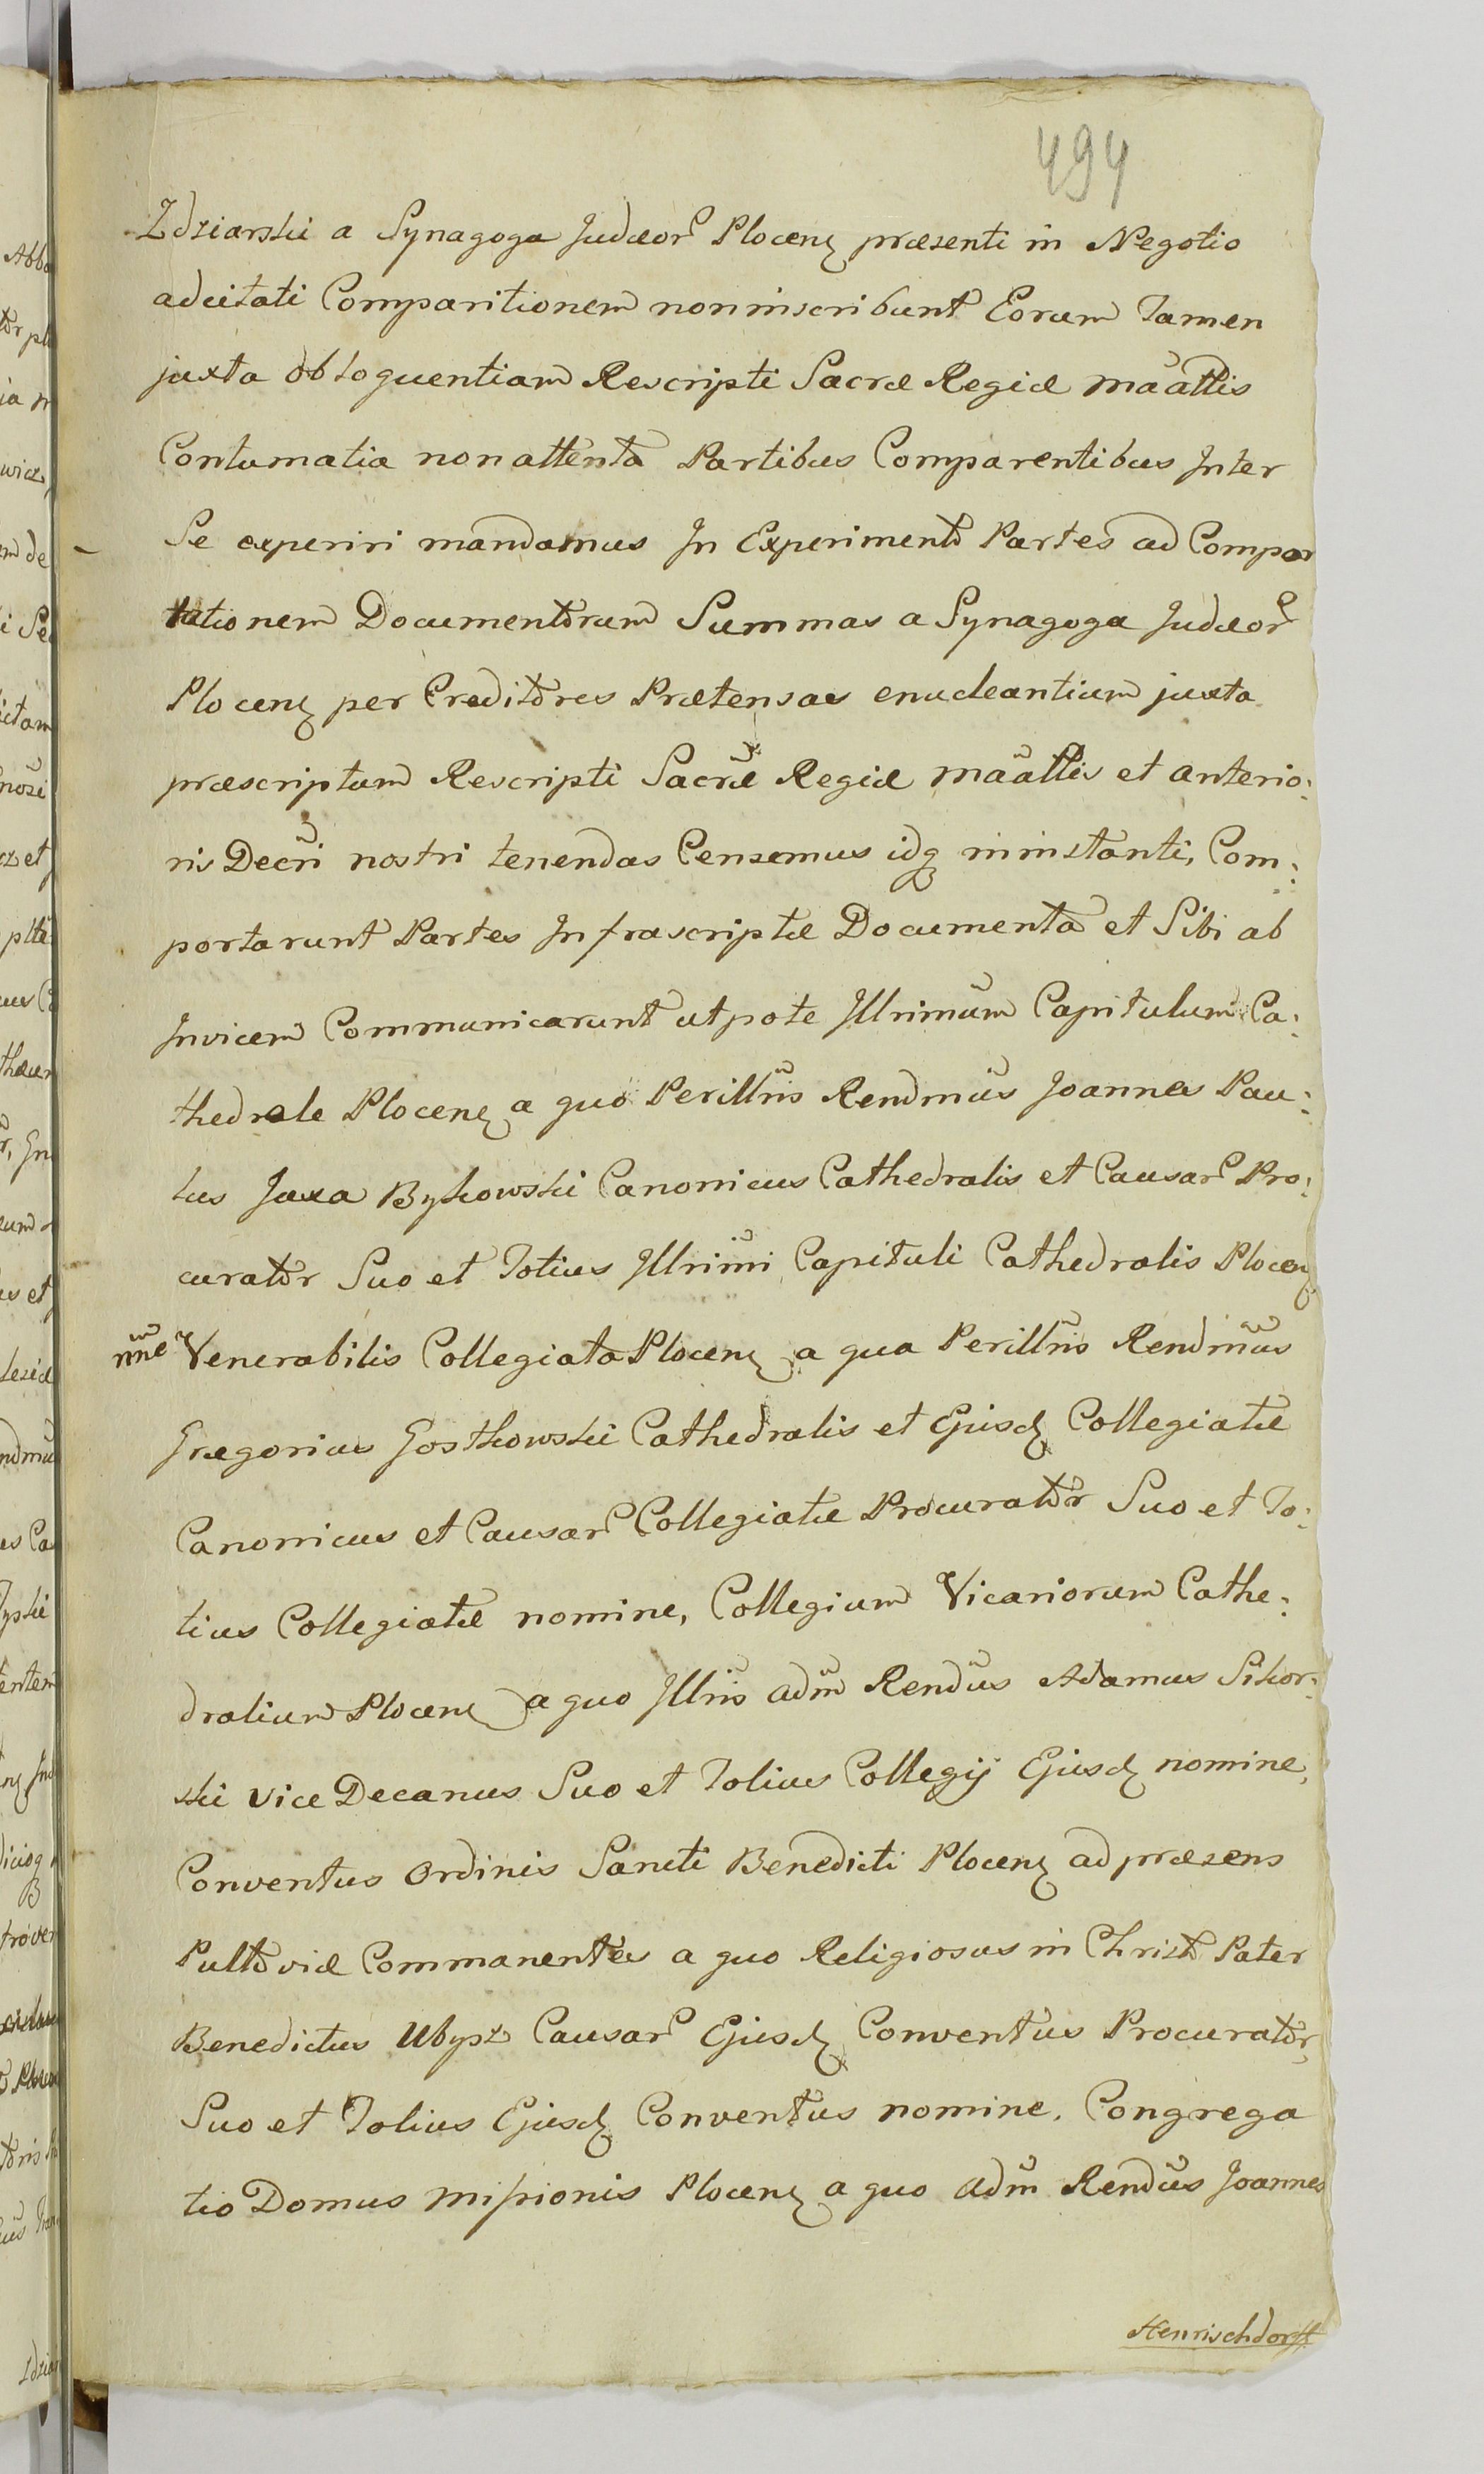 494
Zdziarski a Synagoga Judæor Plocen præsenti in Negotio
adcitati Comparitionem non inscribunt Eorum Tamen
juxta obloquentiam Rescripti Sacræ Regiæ Maattis
Contumatia non attenta Partibus Comparentibus Inter
Se experiri mandamus In Experimento Partes ad Compor
tationem Documentorum Summas a Synagoga Judæor
Plocen per Creditores Prætensas enucleantium juxta
præscriptum Rescripti Sacræ Regiæ Maattis et anterio:
ris Decri nostri tenendas Censemus idq in instanti, Com:
portarunt Partes Infrascriptæ Documenta et Sibi ab
Invicem Communicarunt utpote Illrimum Capitulum Ca:
thedrale Plocen a quo Perillris Rendmus Joannes Pau:
lus Jaxa Bykowski Canonicus Cathedralis et Causar Pro:
curator Suo et Totius Illrimi Capituli Cathedralis Plocen
nne Venerabilis Collegiata Plocen a qua Perillris Rendmus
Gregorius Gostkowski Cathedralis et Ejusd Collegiatæ
Canonicus et Causar Collegiatæ Procurator Suo et To:
tius Collegiatæ nomine, Collegium Vicariorum Cathe:
dralium Plocen a quo Illris adm Rendus Adamus Sikor:
ski Vice Decanus Suo et Totius Collegij Ejusd nomine,
Conventus Ordinis Sancti Benedicti Plocen ad præsens
Pultoviæ Commanentes a quo Religiosus in Christo Pater
Benedictus Ubysz Causar Ejusd Conventus Procurator,
Suo et Totius Ejusd Conventus nomine. Congrega
tio Domus Missionis Plocen a quo Adm Rendus Joannes
Henrischdorff